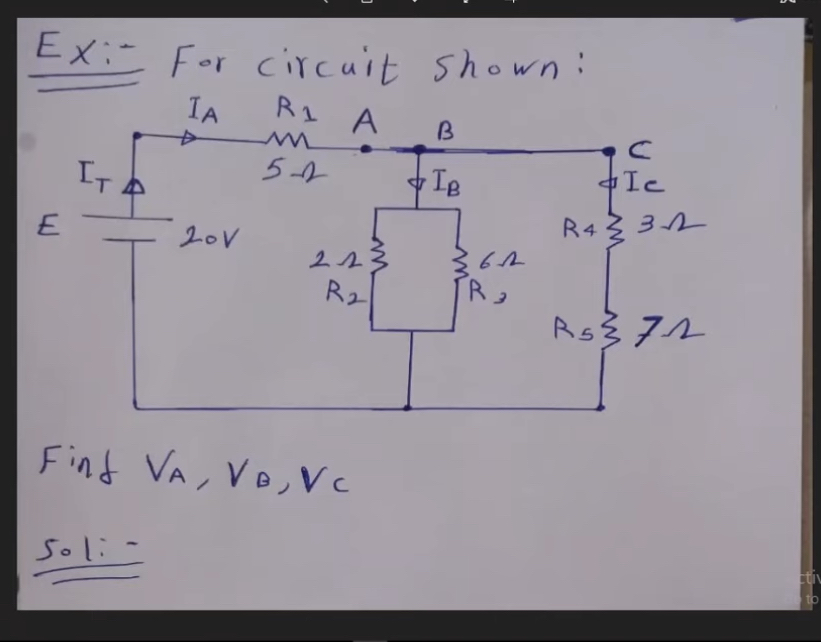 Ex:- For circuit shown:
IA R1 A B
5Ω C
IT IB IC
E 20V R4 3Ω
2Ω 6Ω
R2 R3
R5 7Ω
Find VA, VB, VC
Sol:-